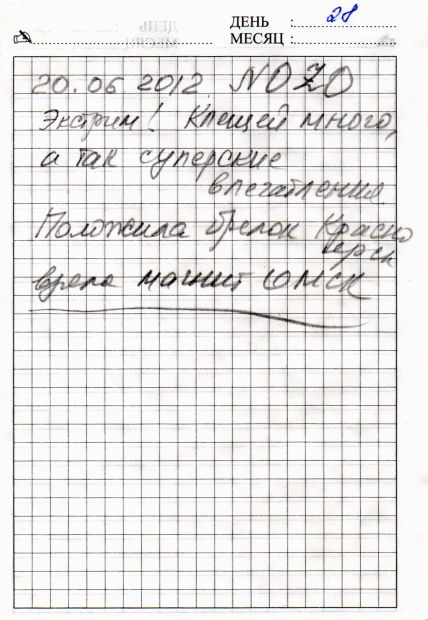 ДЕНЬ : 28
МЕСЯЦ :
20.06 2012. NOZO
Экстрим! Клещей много,
а так суперские
впечатления
Положила брелок Красно
ярск
взяла магнит ОМСК